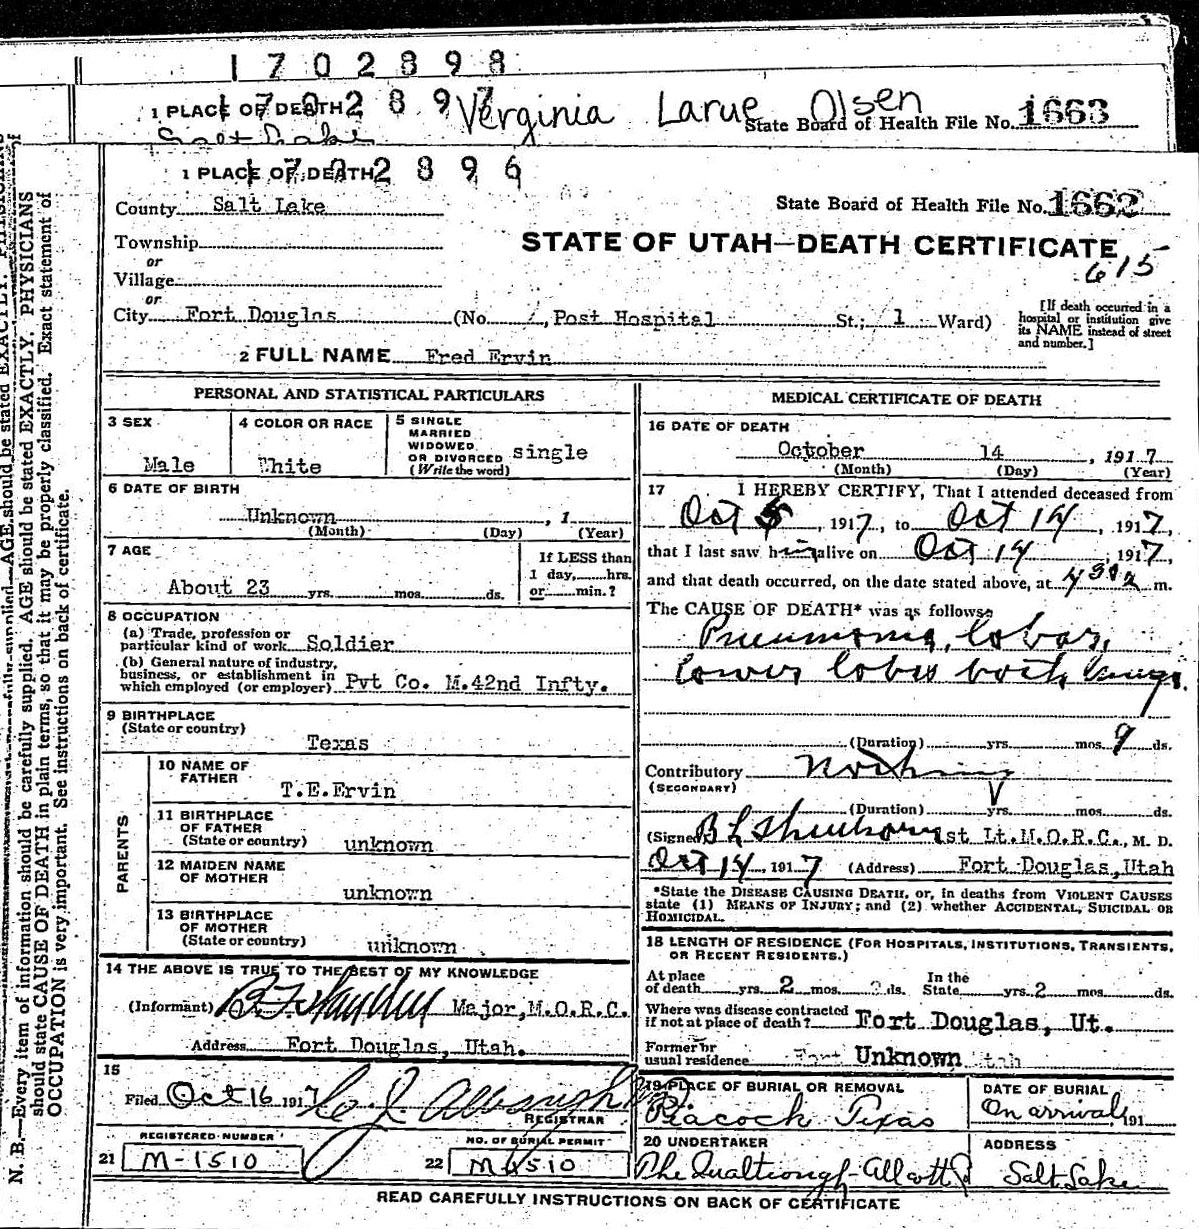 1702898
1 PLACE OF DEATH
Verginia Larue Olsen
State Board of Health File No. 1663
Salt Lake
1 PLACE OF DEATH
County Salt Lake
State Board of Health File No. 1662
Township
STATE OF UTAH—DEATH CERTIFICATE
615
or
Village
or
City Fort Douglas (No. , Post Hospital St.; 1 Ward)
[If death occurred in a hospital or institution give its NAME instead of street and number.]
2 FULL NAME Fred Ervin
PERSONAL AND STATISTICAL PARTICULARS
3 SEX Male
4 COLOR OR RACE White
5 SINGLE MARRIED WIDOWED OR DIVORCED (Write the word) single
6 DATE OF BIRTH
Unknown , 1
(Month) (Day) (Year)
7 AGE
About 23 yrs. mos. ds.
If LESS than 1 day, hrs. or min.?
8 OCCUPATION
(a) Trade, profession or particular kind of work Soldier
(b) General nature of industry, business, or establishment in which employed (or employer) Pvt Co. M.42nd Infty.
9 BIRTHPLACE
(State or country)
Texas
PARENTS
10 NAME OF FATHER
T.E.Ervin
11 BIRTHPLACE OF FATHER
(State or country) unknown
12 MAIDEN NAME OF MOTHER
unknown
13 BIRTHPLACE OF MOTHER
(State or country) unknown
14 THE ABOVE IS TRUE TO THE BEST OF MY KNOWLEDGE
(Informant) Major, M.O.R.C.
Address Fort Douglas, Utah.
15
Filed Oct 16 1917
REGISTRAR
REGISTERED NUMBER
21 M-1510
NO. OF BURIAL PERMIT
22 M1510
MEDICAL CERTIFICATE OF DEATH
16 DATE OF DEATH
October 14 , 1917
(Month) (Day) (Year)
17 I HEREBY CERTIFY, That I attended deceased from
Oct 5, 1917, to Oct 14, 1917,
that I last saw him alive on Oct 14, 1917,
and that death occurred, on the date stated above, at m.
The CAUSE OF DEATH* was as follows:
Pneumonia, lobar,
lower lobes both lungs.
(Duration) yrs. mos. 9 ds.
Contributory Nothing
(SECONDARY)
(Duration) yrs. mos. ds.
(Signed) 1st Lt.M.O.R.C., M. D.
Oct 14, 1917 (Address) Fort Douglas, Utah
*State the DISEASE CAUSING DEATH, or, in deaths from VIOLENT CAUSES
state (1) MEANS OF INJURY; and (2) whether ACCIDENTAL, SUICIDAL OR
HOMICIDAL.
18 LENGTH OF RESIDENCE (FOR HOSPITALS, INSTITUTIONS, TRANSIENTS,
OR RECENT RESIDENTS.)
At place of death yrs. 2 mos. ds. In the State yrs. 2 mos. ds.
Where was disease contracted if not at place of death? Fort Douglas, Ut.
Former or usual residence Unknown
19 PLACE OF BURIAL OR REMOVAL
Peacock Texas
DATE OF BURIAL
On arrival, 191
20 UNDERTAKER
ADDRESS
Salt Lake
READ CAREFULLY INSTRUCTIONS ON BACK OF CERTIFICATE
N. B.—Every item of information should be carefully supplied. AGE should be stated EXACTLY. PHYSICIANS
should state CAUSE OF DEATH in plain terms, so that it may be properly classified. Exact statement of
OCCUPATION is very important. See instructions on back of certificate.